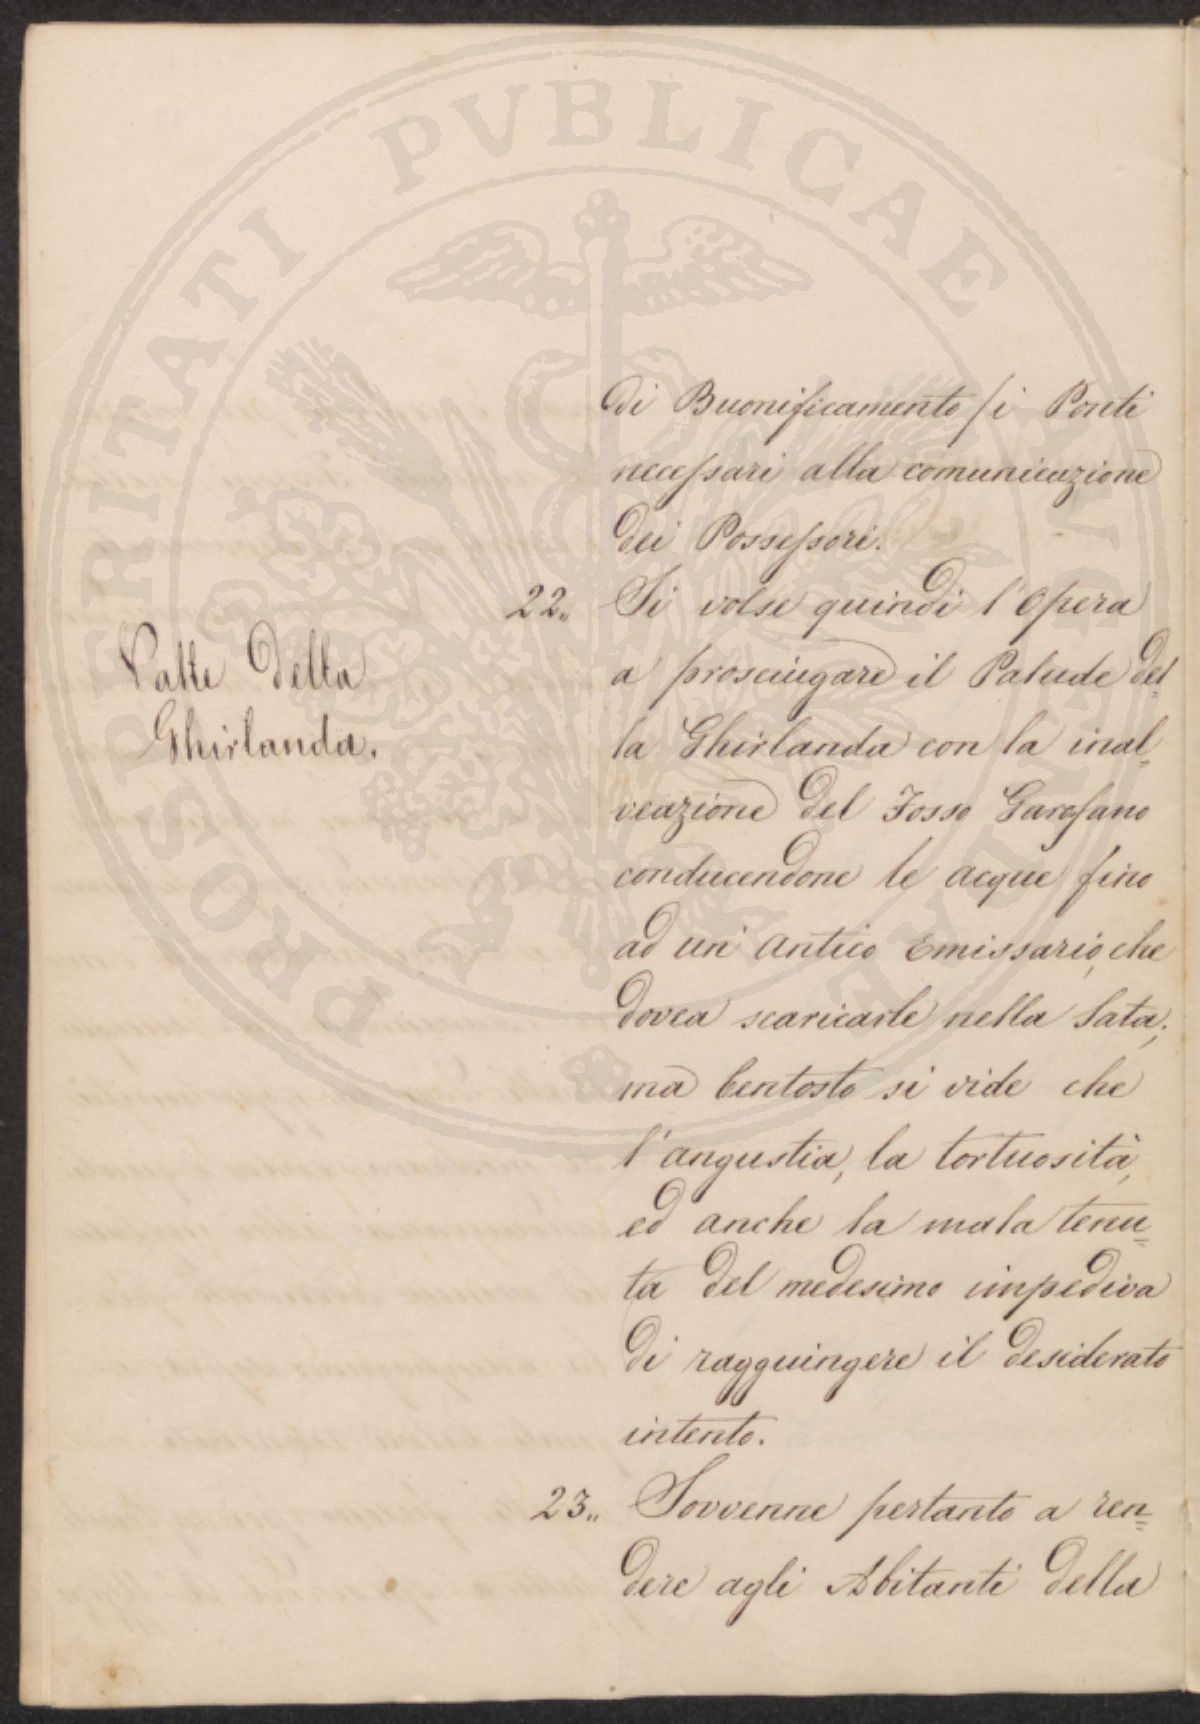 di Buonificamento i Ponti
necessari alla comunicazione
dei Possessori.
22.. Si volse quindi l'Opera
Valle della
Ghirlanda.
a prosciugare il Palude del=
la Ghirlanda con la inal=
veazione del Fosso Garofano
conducendone le acque fino
ad un' antico Emissario, che
dovea scaricarle nella Sata;
ma bentosto si vide che
l'angustia, la tortuosità,
ed anche la mala tenu=
ta del medesimo impediva
di ragguingere il desiderato
intento.
23.. Sovvenne pertanto a ren=
dere agli Abitanti della
PROSPERITATI PVBLICAE AVGENDAE